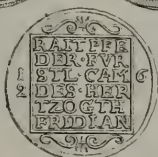 RAITPFE
DER·FVR
STL·CAM
DES·HER
TZOGTH
FRIDIAN
1 6
2